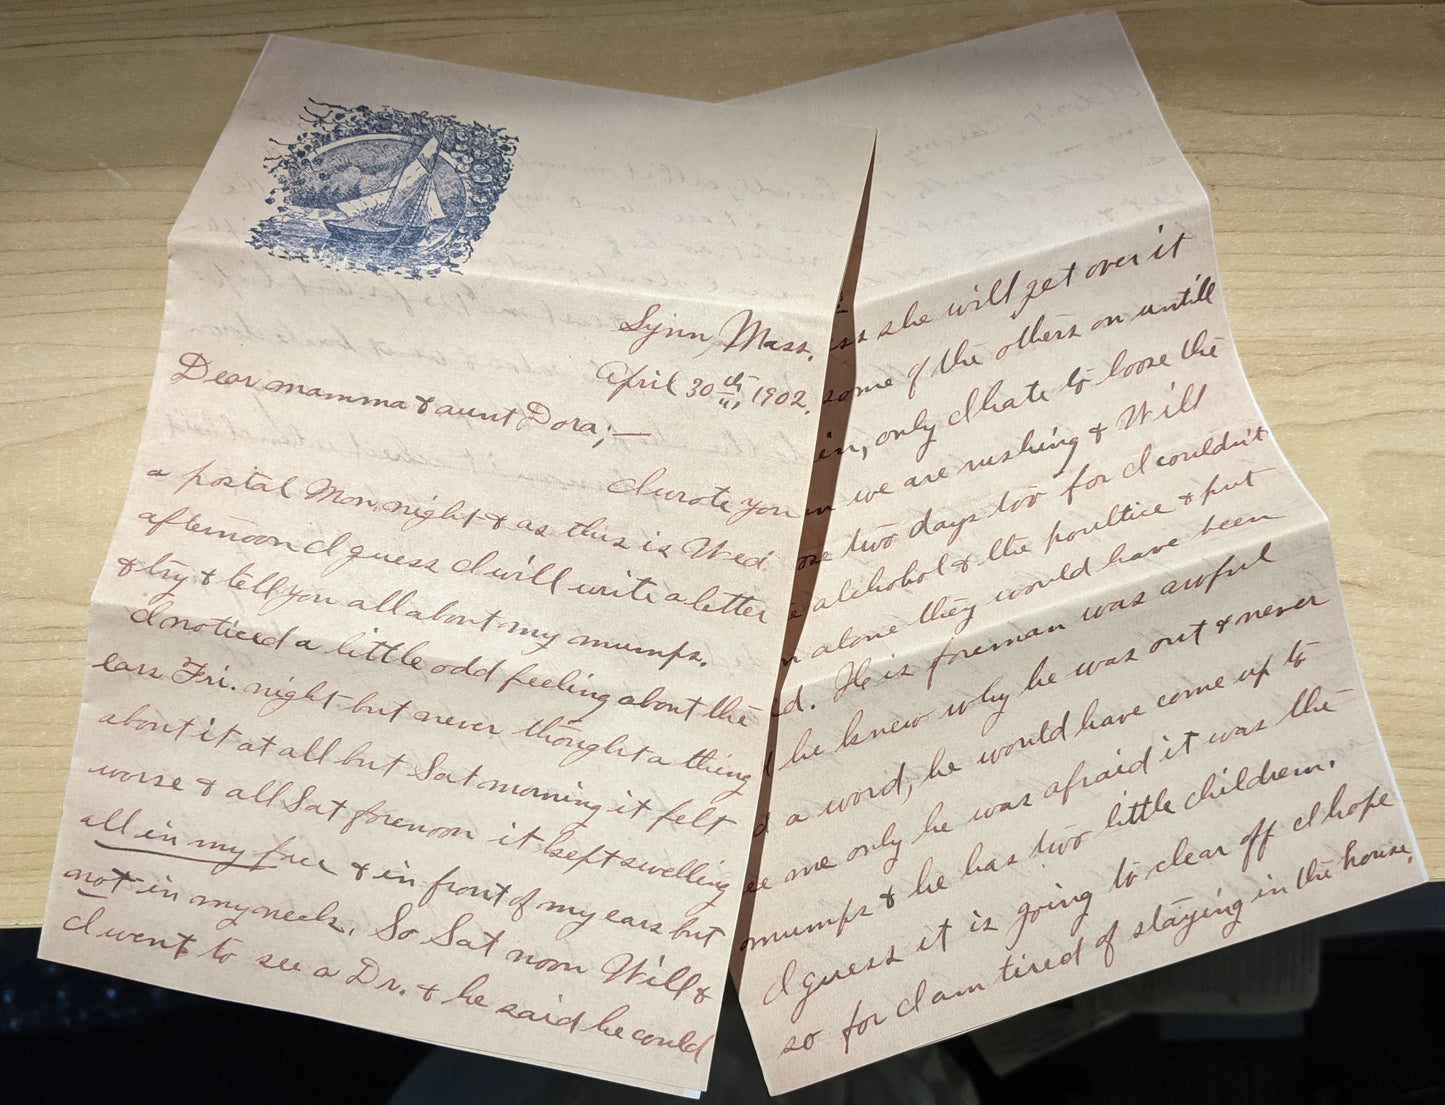 Lynn, Mass.
April 30th 1902.
Dear mamma & aunt Dora;—
I wrote you
a postal Mon. night & as this is Wed.
afternoon I guess I will write a letter
& try & tell you all about my mumps.
I noticed a little odd feeling about the
ears Fri. night but never thought a thing
about it at all but Sat morning it felt
worse & all Sat forenoon it kept swelling
all in my face & in front of my ears but
not in my neck. So Sat noon Will &
I went to see a Dr. & he said he could
ss she will get over it
some of the others on untill
in, only I hate to loose the
n we are rushing & Will
ose two days too for I couldn't
e alchohol & the poultice & put
n alone they would have been
d. He is foreman was awful
he knew why he was out & never
d a word, he would have come up to
ee me only he was afraid it was the
mumps & he has two little children.
I guess it is going to clear off I hope
so for I am tired of staying in the house,